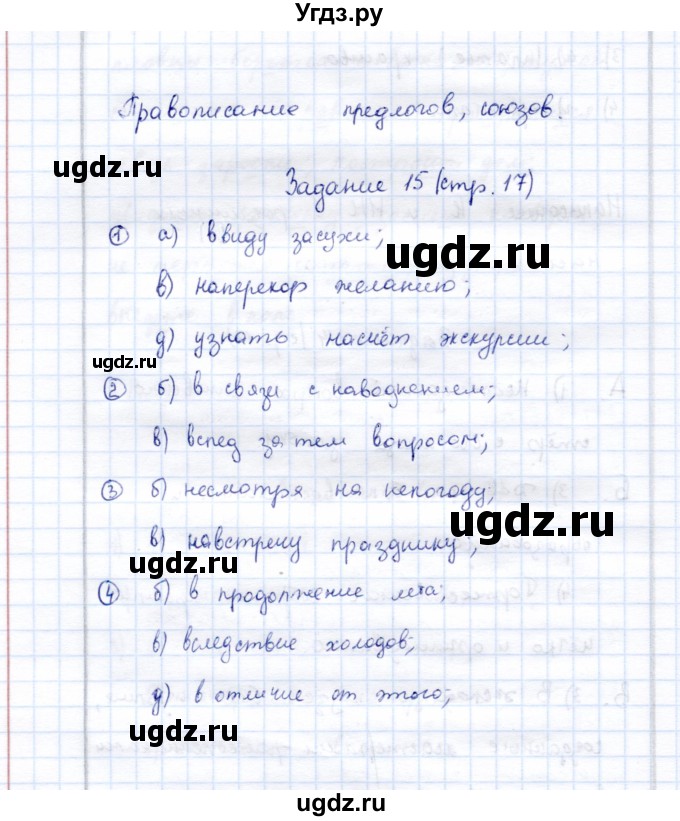 Угдз.ру
Правописание предлогов, союзов.
ugdz.ru
Задание 15 (стр. 17)
① а) ввиду засухи;
ugdz.ru
в) наперекор желанию;
д) узнать насчёт экскурсии;
ugdz.ru
② б) в связи с наводнением;
в) вслед за тем вопросом;
③ б) несмотря на непогоду;
ugdz.ru
в) навстречу празднику;
ugdz.ru
④ б) в продолжение лета;
в) вследствие холодов;
д) в отличие от этого;
ugdz.ru
ugdz.ru